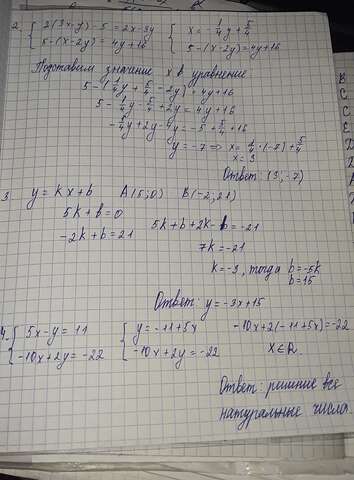 2. { 2(3x-y)-5=2x-3y { x=-1/4y+5/4
5-(x-2y)=4y+16 5-(x-2y)=4y+16
Подставим значение x в уравнение
5-(1/4y+5/4-2y)=4y+16
5-1/4y-5/4+2y=4y+16
-5/4y+2y-4y=-5+5/4+16
y=-7 ⇒ x=-1/4·(-7)+5/4
x=3
Ответ: (3;-7)
3. y=kx+b A(5;0) B(-2;21)
5k+b=0 5k+b+2k-b=-21
-2k+b=21 7k=-21
k=-3, тогда b=-5k
b=15
Ответ: y=-3x+15
4. { 5x-y=11 { y=-11+5x -10x+2(-11+5x)=-22
-10x+2y=-22 -10x+2y=-22 x∈R.
Ответ: решение все
натуральные числа.